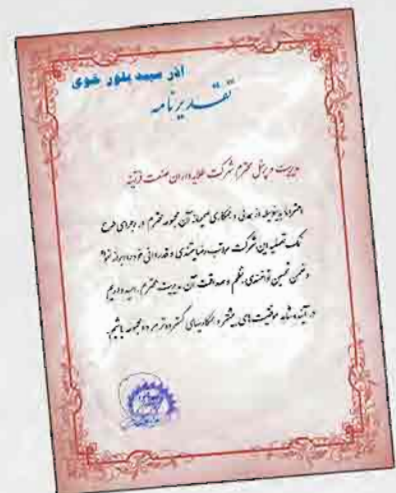 آذر سپید بلور خوی
تقدیرنامه
مدیریت و پرسنل محترم شرکت طلایه داران صنعت فرزتینه
احتراما بدینوسیله از همدلی و همکاری صمیمانه آن مجموعه محترم در اجرای طرح
تک تصفیه این شرکت مراتب رضایتمندی و قدردانی خود را ابراز نموده
و ضمن تحسین توانمندی، نظم و صداقت آن مدیریت محترم، امید داریم
در آینده شاهد موفقیت های بیشتر و همکاریهای گسترده تر هر دو مجموعه باشیم.